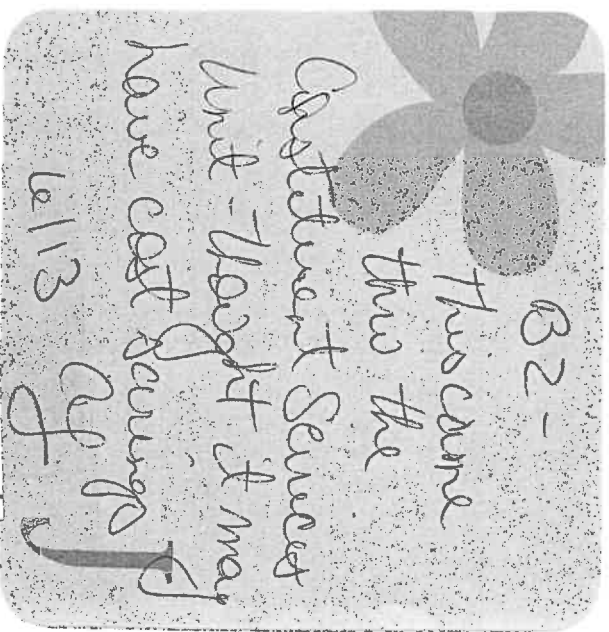 BZ-
This came
thru the
Constituent Services
Unit - Thought it may
have cost savings
6/13